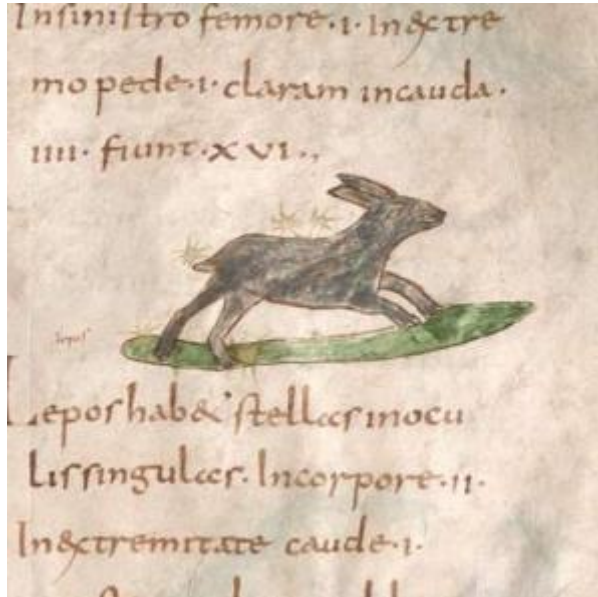 Insinistro femore·i· Inextre
mo pede·i· claram incauda·
iiii· fiunt·xvi·,
lepus
Lepos habet stellas inocu
lis singulas· Incorpore·ii·
Inextremitate caude·i·